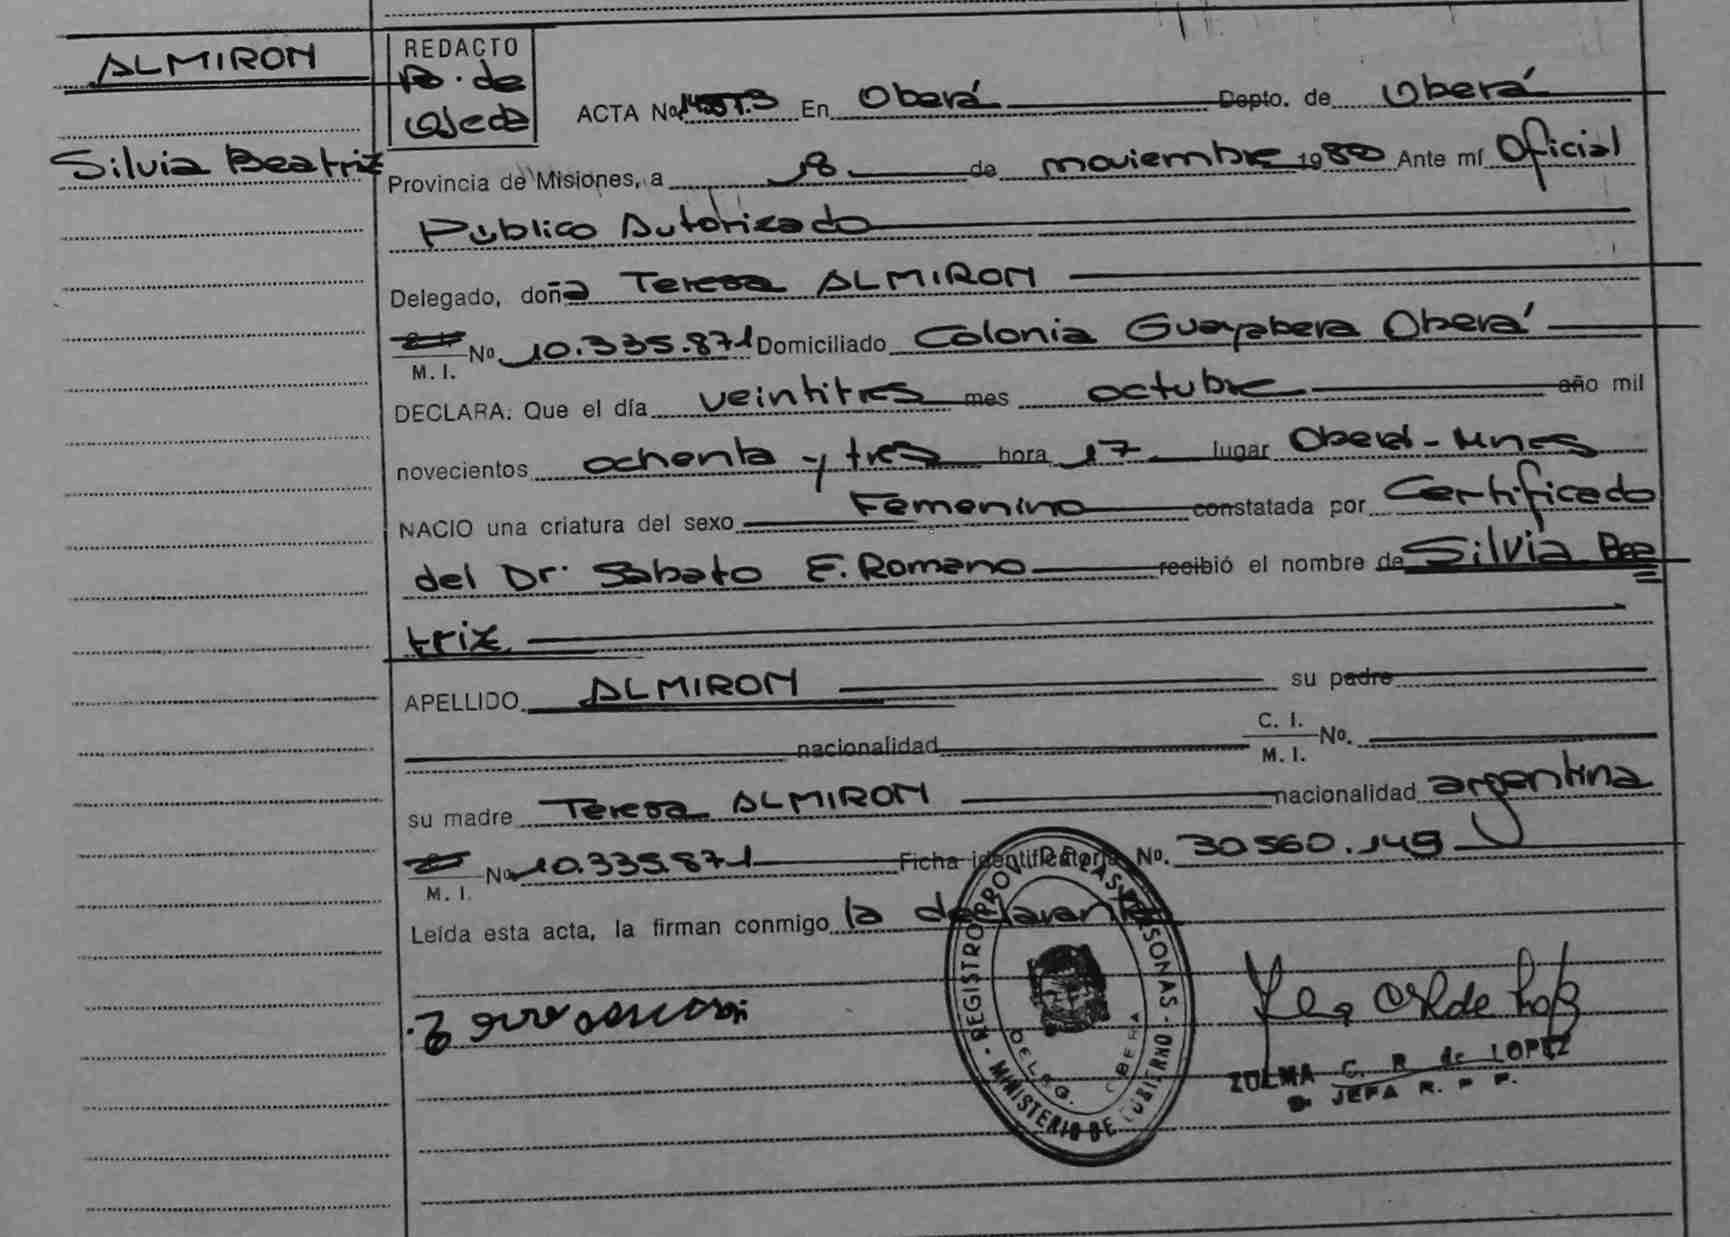 ALMIRON
Silvia Beatriz
REDACTO
de
Ojeda
ACTA No. En Oberá Depto. de Oberá
Provincia de Misiones, a 18 de noviembre 19 Ante mí Oficial
Público Autorizado
Delegado, doña Teresa ALMIRON
M. I. No 10.335.871 Domiciliado Colonia Guayabera Oberá
DECLARA: Que el día veintitres mes octubre año mil
novecientos ochenta y tres hora 17 lugar Oberá - Mnes
NACIO una criatura del sexo Femenino constatada por Certificado
del Dr. Sabato E. Romano recibió el nombre de Silvia Bea
triz
APELLIDO ALMIRON su padre
nacionalidad C. I. M. I. No.
su madre Teresa ALMIRON nacionalidad argentina
M. I. No 10.335.871 Ficha identificatoria No. 30560.149
Leída esta acta, la firman conmigo la declarante
REGISTRO PROV. DE LAS PERSONAS - MINISTERIO DE GOBIERNO -
DELEG. OBERA
ZULMA C. R. de LOPEZ
JEFA R. P. P.